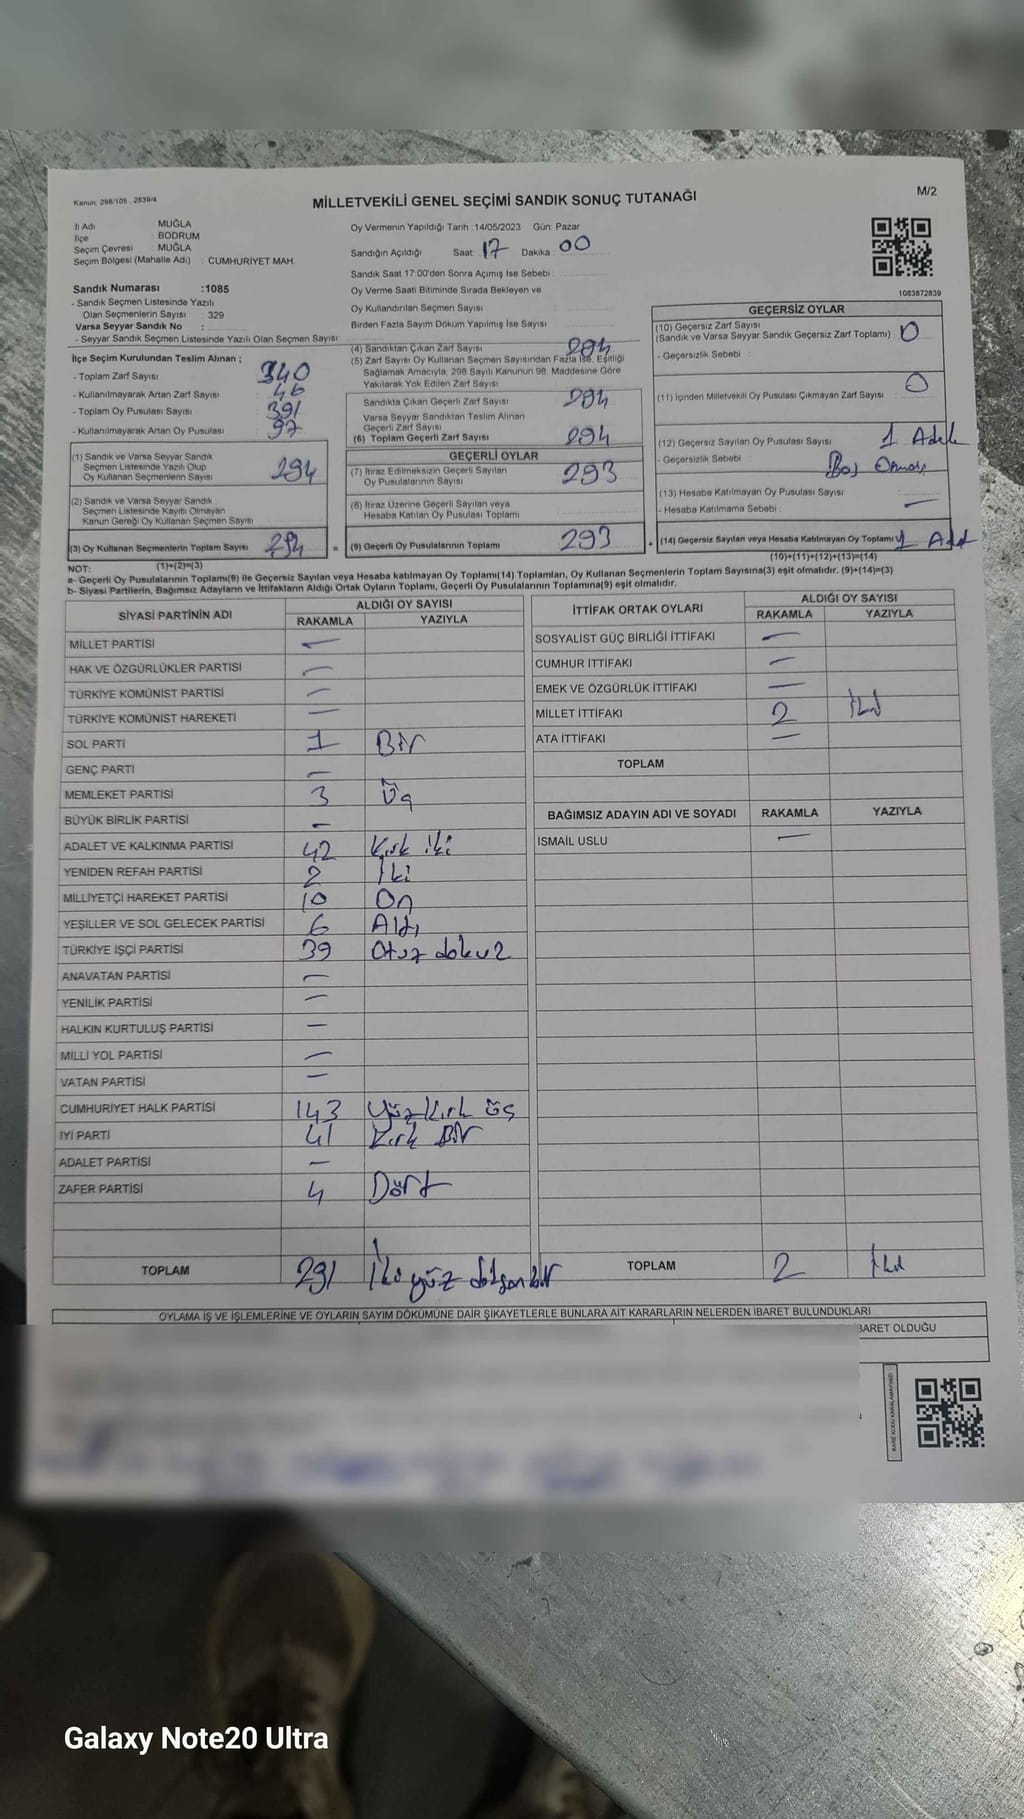 Kanun: 298/105 , 2839/4
MİLLETVEKİLİ GENEL SEÇİMİ SANDIK SONUÇ TUTANAĞI
M/2
İl Adı MUĞLA
İlçe BODRUM
Seçim Çevresi : MUĞLA
Seçim Bölgesi (Mahalle Adı) : CUMHURİYET MAH.
Sandık Numarası :1085
- Sandık Seçmen Listesinde Yazılı
Olan Seçmenlerin Sayısı : 329
Varsa Seyyar Sandık No :
- Seyyar Sandık Seçmen Listesinde Yazılı Olan Seçmen Sayısı
Oy Vermenin Yapıldığı Tarih : 14/05/2023 Gün: Pazar
Sandığın Açıldığı Saat: 17 Dakika : 00
Sandık Saat 17:00'den Sonra Açımış İse Sebebi :
Oy Verme Saati Bitiminde Sırada Bekleyen ve
Oy Kullandırılan Seçmen Sayısı
Birden Fazla Sayım Döküm Yapılmış İse Sayısı
1083872839
İlçe Seçim Kurulundan Teslim Alınan ;
- Toplam Zarf Sayısı 340
- Kullanılmayarak Artan Zarf Sayısı 46
- Toplam Oy Pusulası Sayısı 391
- Kullanılmayarak Artan Oy Pusulası 97
(1) Sandık ve Varsa Seyyar Sandık
Seçmen Listesinde Yazılı Olup
Oy Kullanan Seçmenlerin Sayısı 294
(2) Sandık ve Varsa Seyyar Sandık
Seçmen Listesinde Kayıtlı Olmayan
Kanun Gereği Oy Kullanan Seçmen Sayısı
(3) Oy Kullanan Seçmenlerin Toplam Sayısı 294
(1)+(2)=(3)
(4) Sandıktan Çıkan Zarf Sayısı 294
(5) Zarf Sayısı Oy Kullanan Seçmen Sayısından Fazla İse, Eşitliği
Sağlamak Amacıyla, 298 Sayılı Kanunun 98. Maddesine Göre
Yakılarak Yok Edilen Zarf Sayısı
Sandıkta Çıkan Geçerli Zarf Sayısı 294
Varsa Seyyar Sandıktan Teslim Alınan
Geçerli Zarf Sayısı
(6) Toplam Geçerli Zarf Sayısı 294
GEÇERLİ OYLAR
(7) İtiraz Edilmeksizin Geçerli Sayılan
Oy Pusulalarının Sayısı 293
(8) İtiraz Üzerine Geçerli Sayılan veya
Hesaba Katılan Oy Pusulası Toplamı
= (9) Geçerli Oy Pusulalarının Toplamı 293
GEÇERSİZ OYLAR
(10) Geçersiz Zarf Sayısı
(Sandık ve Varsa Seyyar Sandık Geçersiz Zarf Toplamı) : 0
- Geçersizlik Sebebi :
(11) İçinden Milletvekili Oy Pusulası Çıkmayan Zarf Sayısı : 0
(12) Geçersiz Sayılan Oy Pusulası Sayısı 1 Adet
- Geçersizlik Sebebi : Boş Olması
(13) Hesaba Katılmayan Oy Pusulası Sayısı
- Hesaba Katılmama Sebebi : —
+ (14) Geçersiz Sayılan veya Hesaba Katılmayan Oy Toplamı 1 Adet
(10)+(11)+(12)+(13)=(14)
NOT:
a- Geçerli Oy Pusulalarının Toplamı(9) ile Geçersiz Sayılan veya Hesaba katılmayan Oy Toplamı(14) Toplamları, Oy Kullanan Seçmenlerin Toplam Sayısına(3) eşit olmalıdır. (9)+(14)=(3)
b- Siyasi Partilerin, Bağımsız Adayların ve İttifakların Aldığı Ortak Oyların Toplamı, Geçerli Oy Pusulalarının Toplamına(9) eşit olmalıdır.
SİYASİ PARTİNİN ADI
ALDIĞI OY SAYISI
RAKAMLA YAZIYLA
MİLLET PARTİSİ —
HAK VE ÖZGÜRLÜKLER PARTİSİ —
TÜRKİYE KOMÜNİST PARTİSİ —
TÜRKİYE KOMÜNİST HAREKETİ —
SOL PARTİ 1 Bir
GENÇ PARTİ —
MEMLEKET PARTİSİ 3 Üç
BÜYÜK BİRLİK PARTİSİ —
ADALET VE KALKINMA PARTİSİ 42 Kırk iki
YENİDEN REFAH PARTİSİ 2 İki
MİLLİYETÇİ HAREKET PARTİSİ 10 On
YEŞİLLER VE SOL GELECEK PARTİSİ 6 Altı
TÜRKİYE İŞÇİ PARTİSİ 39 Otuz dokuz
ANAVATAN PARTİSİ —
YENİLİK PARTİSİ —
HALKIN KURTULUŞ PARTİSİ —
MİLLİ YOL PARTİSİ —
VATAN PARTİSİ —
CUMHURİYET HALK PARTİSİ 143 Yüz Kırk üç
İYİ PARTİ 41 Kırk Bir
ADALET PARTİSİ —
ZAFER PARTİSİ 4 Dört
TOPLAM 291 İki yüz doksan bir
İTTİFAK ORTAK OYLARI
ALDIĞI OY SAYISI
RAKAMLA YAZIYLA
SOSYALİST GÜÇ BİRLİĞİ İTTİFAKI —
CUMHUR İTTİFAKI —
EMEK VE ÖZGÜRLÜK İTTİFAKI —
MİLLET İTTİFAKI 2 İki
ATA İTTİFAKI —
TOPLAM
BAĞIMSIZ ADAYIN ADI VE SOYADI RAKAMLA YAZIYLA
İSMAİL USLU —
TOPLAM 2 İki
OYLAMA İŞ VE İŞLEMLERİNE VE OYLARIN SAYIM DÖKÜMÜNE DAİR ŞİKAYETLERLE BUNLARA AİT KARARLARIN NELERDEN İBARET BULUNDUKLARI
BARET OLDUĞU
KARE KODU KARALAMAYINIZ!
Galaxy Note20 Ultra